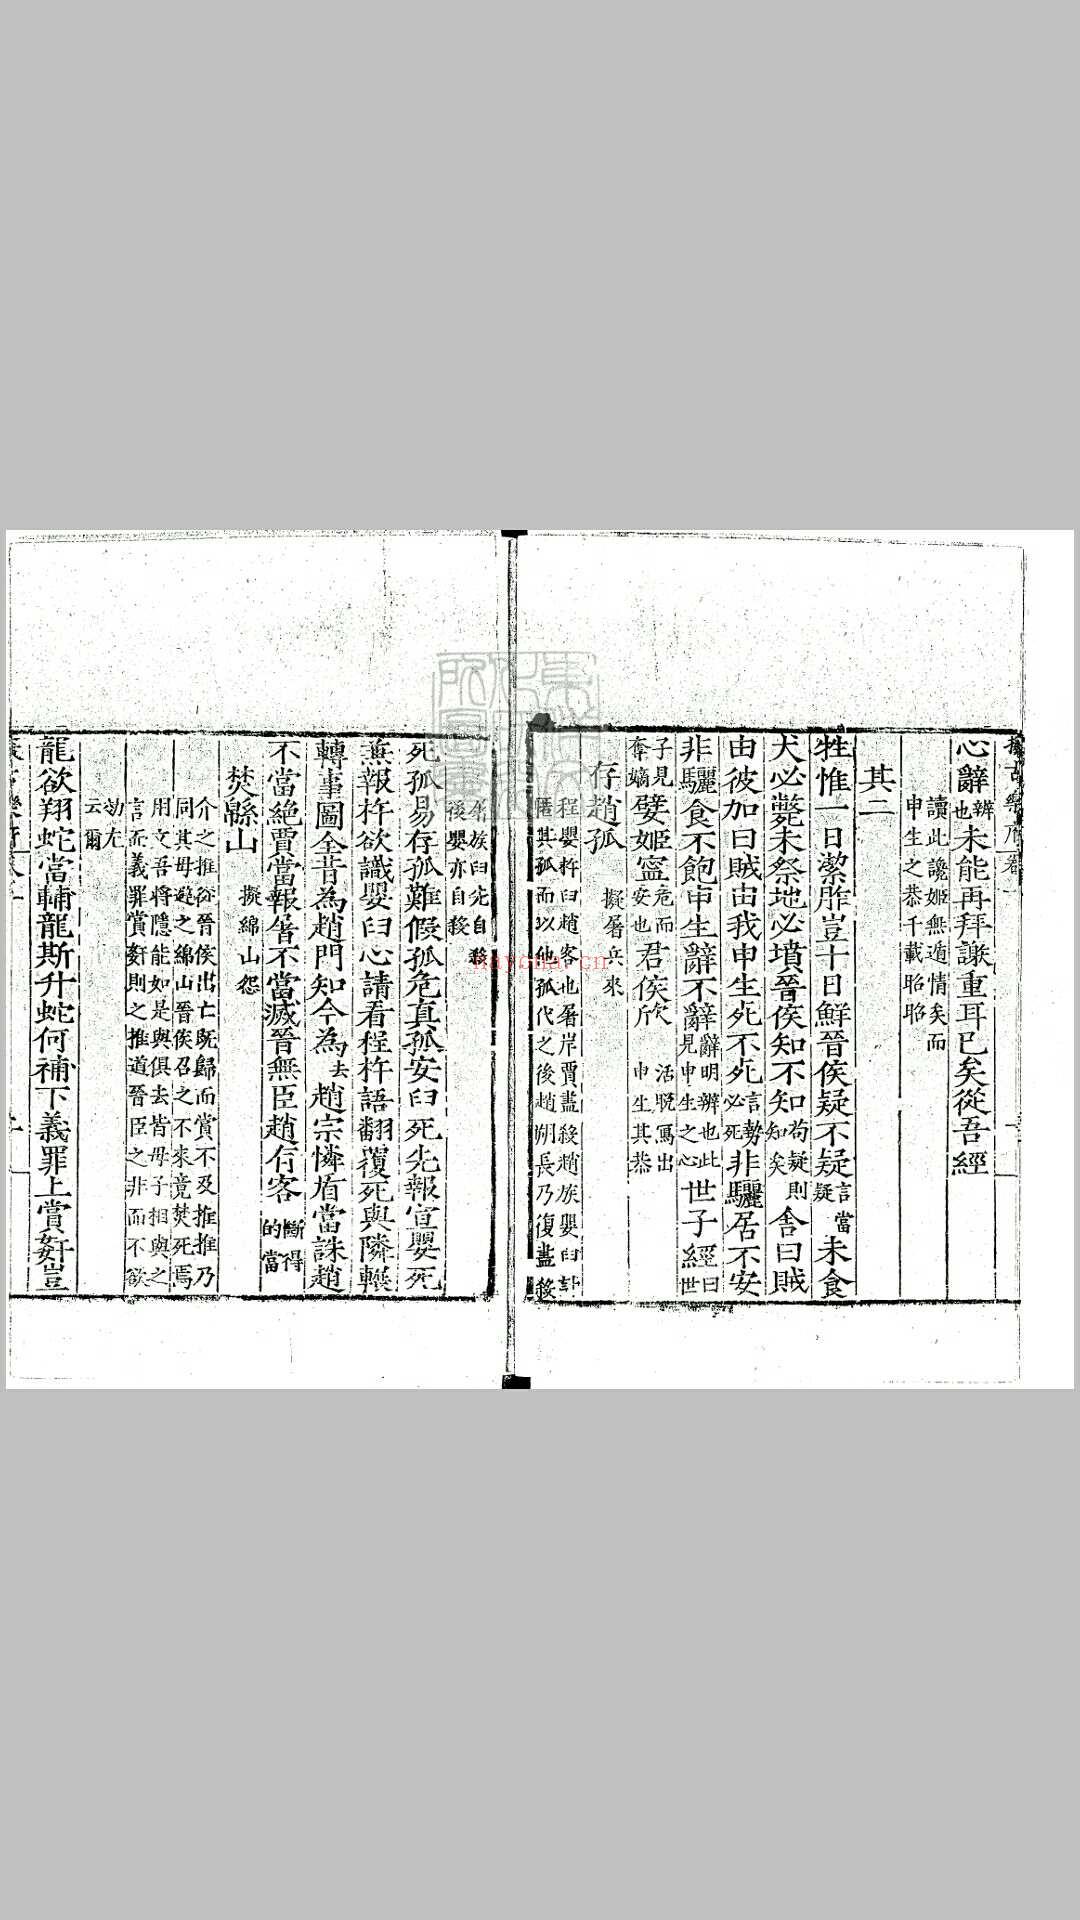 心辭辨也未能再拜謝重耳已矣從吾經
讀此讒姬無遁情矣而
申生之恭千載昭昭
其二
牲惟一日潔胙豈十日鮮晉侯疑不疑言當疑未食
犬必斃未祭地必墳晉侯知不知苟疑則知矣舍曰賊
由彼加曰賊由我申生死不死言勢必死非驪居不安
非驪食不飽申生辭不辭辭明辨也此見申生之心世子經曰世
子見奪嫡嬖姬寧危而安也君侯斤 活脫寫出申生其恭
存趙孤 擬屠兵來
程嬰杵臼趙客也屠岸賈盡殺趙族嬰臼計
匿其孤而以他孤代之後趙朔長乃復盡殺
屠族臼先自殺
後嬰亦自殺
死孤易存孤難假孤危真孤安臼死先報宣嬰死
無報杵欲識嬰臼心請看程杵語翻覆死與隣輾
轉事圖全昔為趙門知今為去趙宗憐盾當誅趙
不當絕賈當報屠不當滅晉無臣趙有客 斷得的當
焚緜山 擬綿山怨
介之推從晉侯出亡既歸而賞不及推推乃
同其母避之綿山晉侯召之不來竟焚死焉
用文吾將隱能如是與俱去皆母子相與之
言而義罪賞姦則之推道晉臣之非而不欲
効尤
云爾
龍欲翔蛇當輔龍斯升蛇何補下義罪上賞姦豈
nayona.cn